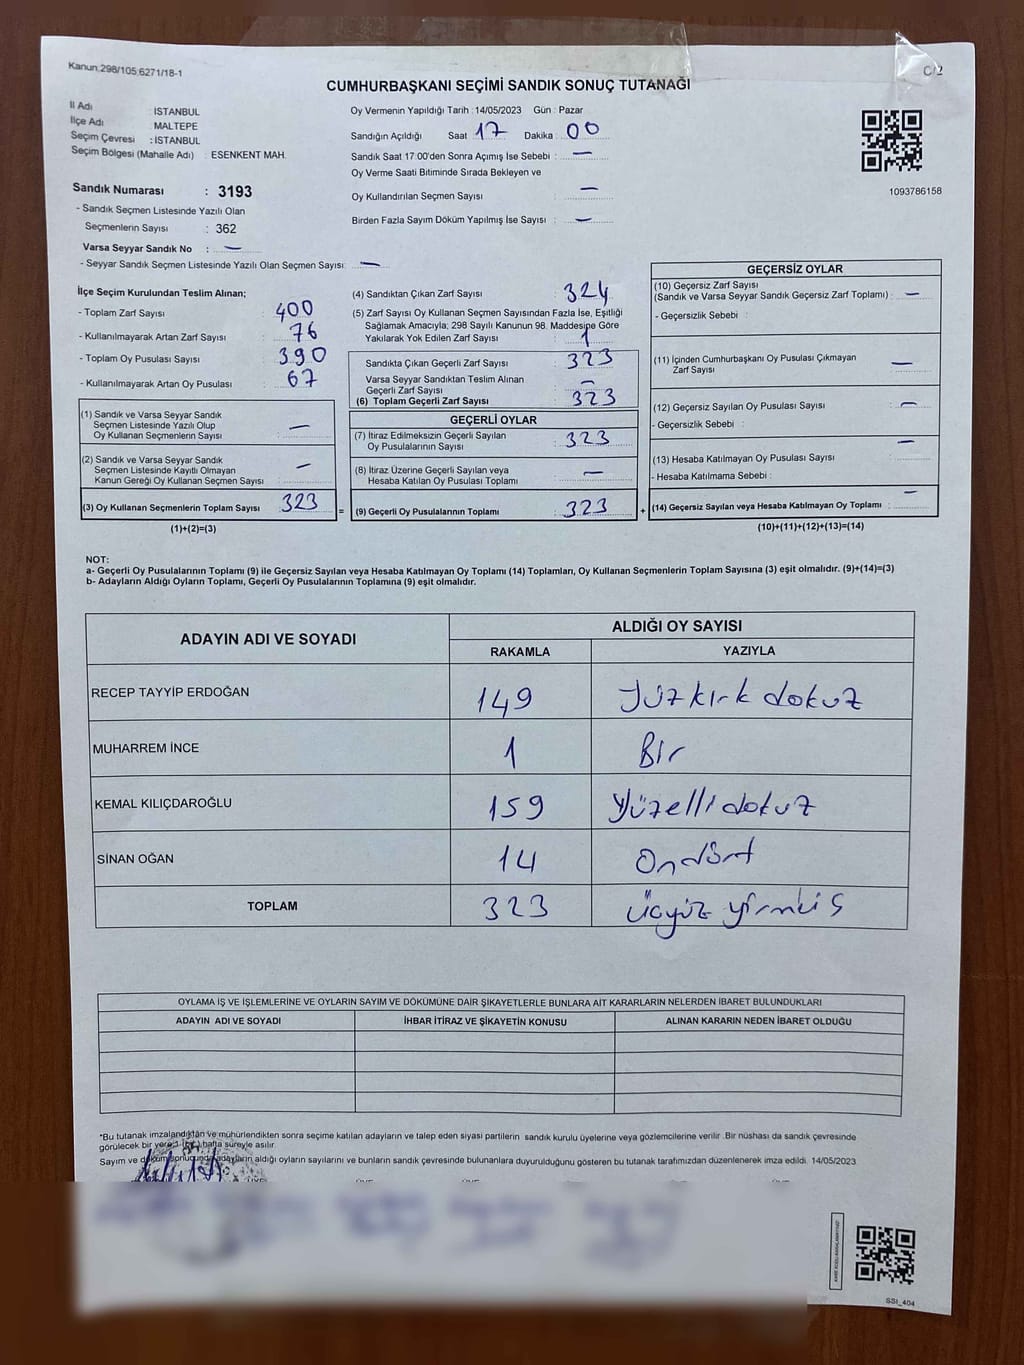 Kanun:298/105;6271/18-1
C/2
CUMHURBAŞKANI SEÇİMİ SANDIK SONUÇ TUTANAĞI
İl Adı : İSTANBUL
İlçe Adı : MALTEPE
Seçim Çevresi : İSTANBUL
Seçim Bölgesi (Mahalle Adı) : ESENKENT MAH.
Oy Vermenin Yapıldığı Tarih : 14/05/2023 Gün : Pazar
Sandığın Açıldığı Saat 17 Dakika : 00
Sandık Saat 17:00'den Sonra Açımış İse Sebebi : —
Oy Verme Saati Bitiminde Sırada Bekleyen ve
Oy Kullandırılan Seçmen Sayısı : —
Birden Fazla Sayım Döküm Yapılmış İse Sayısı : —
1093786158
Sandık Numarası : 3193
- Sandık Seçmen Listesinde Yazılı Olan
Seçmenlerin Sayısı : 362
Varsa Seyyar Sandık No : —
- Seyyar Sandık Seçmen Listesinde Yazılı Olan Seçmen Sayısı: —
İlçe Seçim Kurulundan Teslim Alınan;
- Toplam Zarf Sayısı : 400
- Kullanılmayarak Artan Zarf Sayısı : 76
- Toplam Oy Pusulası Sayısı : 390
- Kullanılmayarak Artan Oy Pusulası : 67
(1) Sandık ve Varsa Seyyar Sandık
Seçmen Listesinde Yazılı Olup
Oy Kullanan Seçmenlerin Sayısı : —
(2) Sandık ve Varsa Seyyar Sandık
Seçmen Listesinde Kayıtlı Olmayan
Kanun Gereği Oy Kullanan Seçmen Sayısı : —
(3) Oy Kullanan Seçmenlerin Toplam Sayısı : 323
(1)+(2)=(3)
(4) Sandıktan Çıkan Zarf Sayısı : 324
(5) Zarf Sayısı Oy Kullanan Seçmen Sayısından Fazla İse, Eşitliği
Sağlamak Amacıyla; 298 Sayılı Kanunun 98. Maddesine Göre
Yakılarak Yok Edilen Zarf Sayısı : 1
Sandıkta Çıkan Geçerli Zarf Sayısı : 323
Varsa Seyyar Sandıktan Teslim Alınan
Geçerli Zarf Sayısı : —
(6) Toplam Geçerli Zarf Sayısı : 323
GEÇERLİ OYLAR
(7) İtiraz Edilmeksizin Geçerli Sayılan
Oy Pusulalarının Sayısı : 323
(8) İtiraz Üzerine Geçerli Sayılan veya
Hesaba Katılan Oy Pusulası Toplamı : —
=
(9) Geçerli Oy Pusulalarının Toplamı : 323
+
GEÇERSİZ OYLAR
(10) Geçersiz Zarf Sayısı
(Sandık ve Varsa Seyyar Sandık Geçersiz Zarf Toplamı) : —
- Geçersizlik Sebebi :
(11) İçinden Cumhurbaşkanı Oy Pusulası Çıkmayan
Zarf Sayısı : —
(12) Geçersiz Sayılan Oy Pusulası Sayısı : —
- Geçersizlik Sebebi :
(13) Hesaba Katılmayan Oy Pusulası Sayısı : —
- Hesaba Katılmama Sebebi :
(14) Geçersiz Sayılan veya Hesaba Katılmayan Oy Toplamı : —
(10)+(11)+(12)+(13)=(14)
NOT:
a- Geçerli Oy Pusulalarının Toplamı (9) ile Geçersiz Sayılan veya Hesaba Katılmayan Oy Toplamı (14) Toplamları, Oy Kullanan Seçmenlerin Toplam Sayısına (3) eşit olmalıdır. (9)+(14)=(3)
b- Adayların Aldığı Oyların Toplamı, Geçerli Oy Pusulalarının Toplamına (9) eşit olmalıdır.
ADAYIN ADI VE SOYADI
ALDIĞI OY SAYISI
RAKAMLA YAZIYLA
RECEP TAYYİP ERDOĞAN 149 Yüzkırk dokuz
MUHARREM İNCE 1 Bir
KEMAL KILIÇDAROĞLU 159 Yüzelli dokuz
SİNAN OĞAN 14 Ondört
TOPLAM 323 Üçyüz
OYLAMA İŞ VE İŞLEMLERİNE VE OYLARIN SAYIM VE DÖKÜMÜNE DAİR ŞİKAYETLERLE BUNLARA AİT KARARLARIN NELERDEN İBARET BULUNDUKLARI
ADAYIN ADI VE SOYADI İHBAR İTİRAZ VE ŞİKAYETİN KONUSU ALINAN KARARIN NEDEN İBARET OLDUĞU
*Bu tutanak imzalandıktan ve mühürlendikten sonra seçime katılan adayların ve talep eden siyasi partilerin sandık kurulu üyelerine veya gözlemcilerine verilir .Bir nüshası da sandık çevresinde
görülecek bir yere 1 (bir) hafta süreyle asılır.
Sayım ve döküm sonucunda adayların aldığı oyların sayılarını ve bunların sandık çevresinde bulunanlara duyurulduğunu gösteren bu tutanak tarafımızdan düzenlenerek imza edildi. 14/05/2023
SSI_404